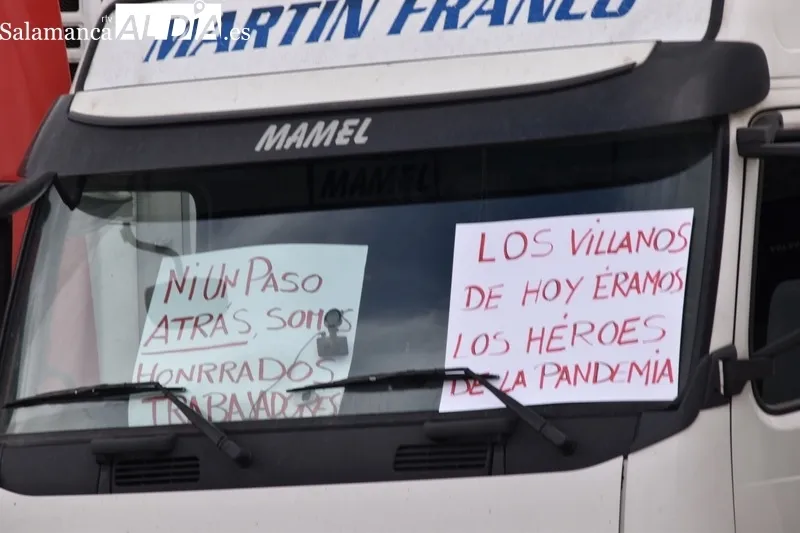 rtv
Salamanca AL DÍA.es
MARTIN FRANCO
MAMEL
MAMEL
NI UN PASO
ATRÁS, SOMOS
HONRRADOS
TRABAJADORES
LOS VILLANOS
DE HOY ÉRAMOS
LOS HÉROES
DE LA PANDEMIA